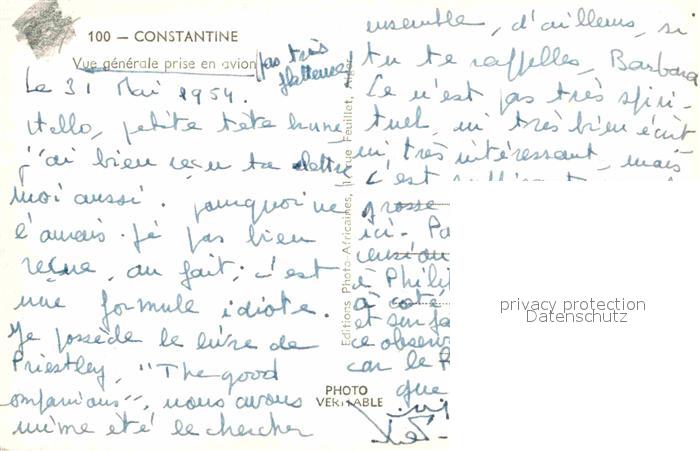 100 — CONSTANTINE
Vue générale prise en avion
pas très
flatteuse
Le 31 Mai 1954.
Hello, petite tête brune,
j'ai bien reçu ta lettre
moi aussi. pourquoi ne
l'aurais-je pas bien
reçue, au fait; c'est
une formule idiote.
Je possède le livre de
Priestley, "The good
ompanions", nous avons
même été le chercher
ensemble, d'ailleurs, si
tu te rappelles, Barbara
Ce n'est pas très spiri-
tuel, ni très bien écrit
ni très intéressant, mais
c'est
grosse
ici. Pa
à Phili
à côté
et son
ce observ
car le
que
Editions Photo Africaines, rue Feuillet, Alger
PHOTO
VERITABLE
privacy protection
Datenschutz